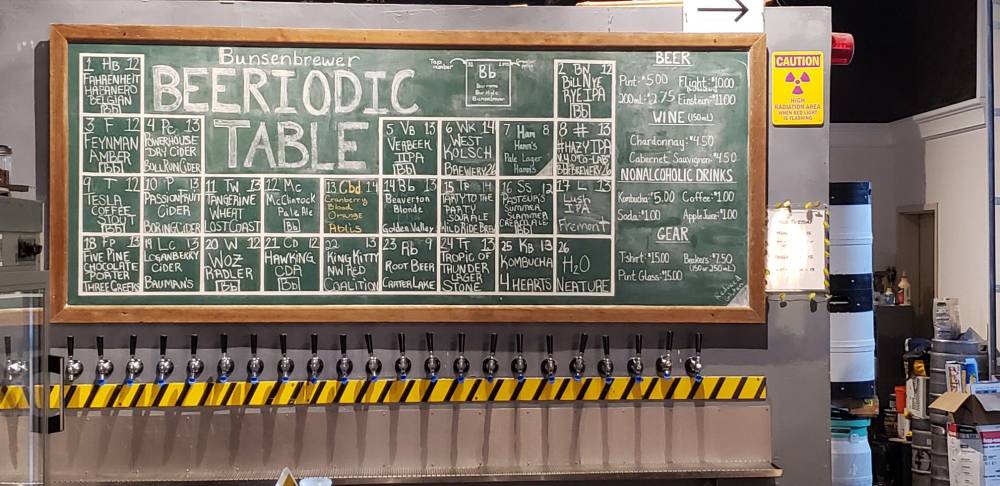 Bunsenbrewer
BEERIODIC
TABLE
Tap number
Bb
1 HB 12
FAHRENHEIT
HABANERO
BELGIAN
Bb
2 BN 12
BILL NYE
RYE IPA
Bb
3 F 12
FEYNMAN
AMBER
Bb
4 Pc 13
POWERHOUSE
DRY CIDER
BULL RUN CIDER
5 VB 13
VERBEEK
IPA
Bb
6 WK 14
WEST
KOLSCH
BREWERY 26
7 Ham 8
Hamm's
Pale Lager
Hamm's
8 # 13
#HAZY IPA
BBBREWERY26
9 T 12
TESLA
COFFEE
STOUT
Bb
10 P 13
PASSIONFRUIT
CIDER
BORING CIDER
11 TW 13
TANGERINE
WHEAT
LOST COAST
12 Mc
McClintock
Pale Ale
Bb
13 Cbd 14
Cranberry
Blood
Orange
Ablis
14 Bb 13
Beaverton
Blonde
Golden Valley
15 TP 14
PARTY TO THE
PARTY
SOUR ALE
WILD RIDE BREW
16 SS 12
PASTEUR'S
SUMMER
SLAMMER
CREAM ALE
Bb
17 L 13
Lush
IPA
Fremont
18 FP 13
FIVE PINE
CHOCOLATE
PORTER
THREE CREEKS
19 LC 13
LOGANBERRY
CIDER
BAUMAN'S
20 W 12
WOZ
RADLER
Bb
21 CD 12
HAWKING
CDA
Bb
22 13
KING KITTY
NW RED
COALITION
23 Ab 9
ROOT BEER
CRATER LAKE
24 TT 13
TROPIC OF
THUNDER
LAGER
STONE
25 KB 13
KOMBUCHA
4 HEARTS
26
H2O
NEATURE
BEER
Pint: $5.00 Flight: $10.00
200mL: $2.75 Einstein: $11.00
WINE (150mL)
Chardonnay: $4.50
Cabernet Sauvignon: $4.50
NONALCOHOLIC DRINKS
Kombucha: $5.00 Coffee: $1.00
Soda: $1.00 Apple Juice: $1.00
GEAR
T-shirt: $15.00 Beakers: $7.50
(150 or 250mL)
Pint Glass: $15.00
CAUTION
HIGH
RADIATION AREA
WHEN RED LIGHT
IS FLASHING